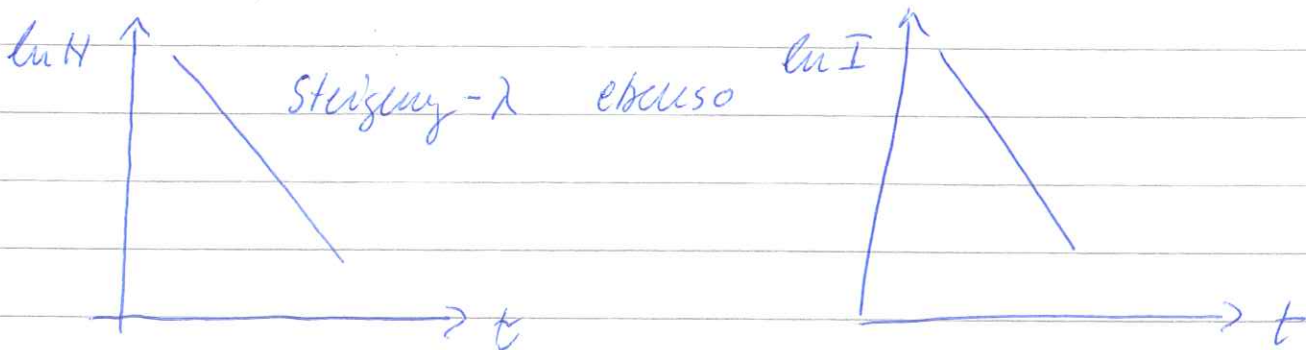 ln N
Steigung -λ ebenso
ln I
t
t